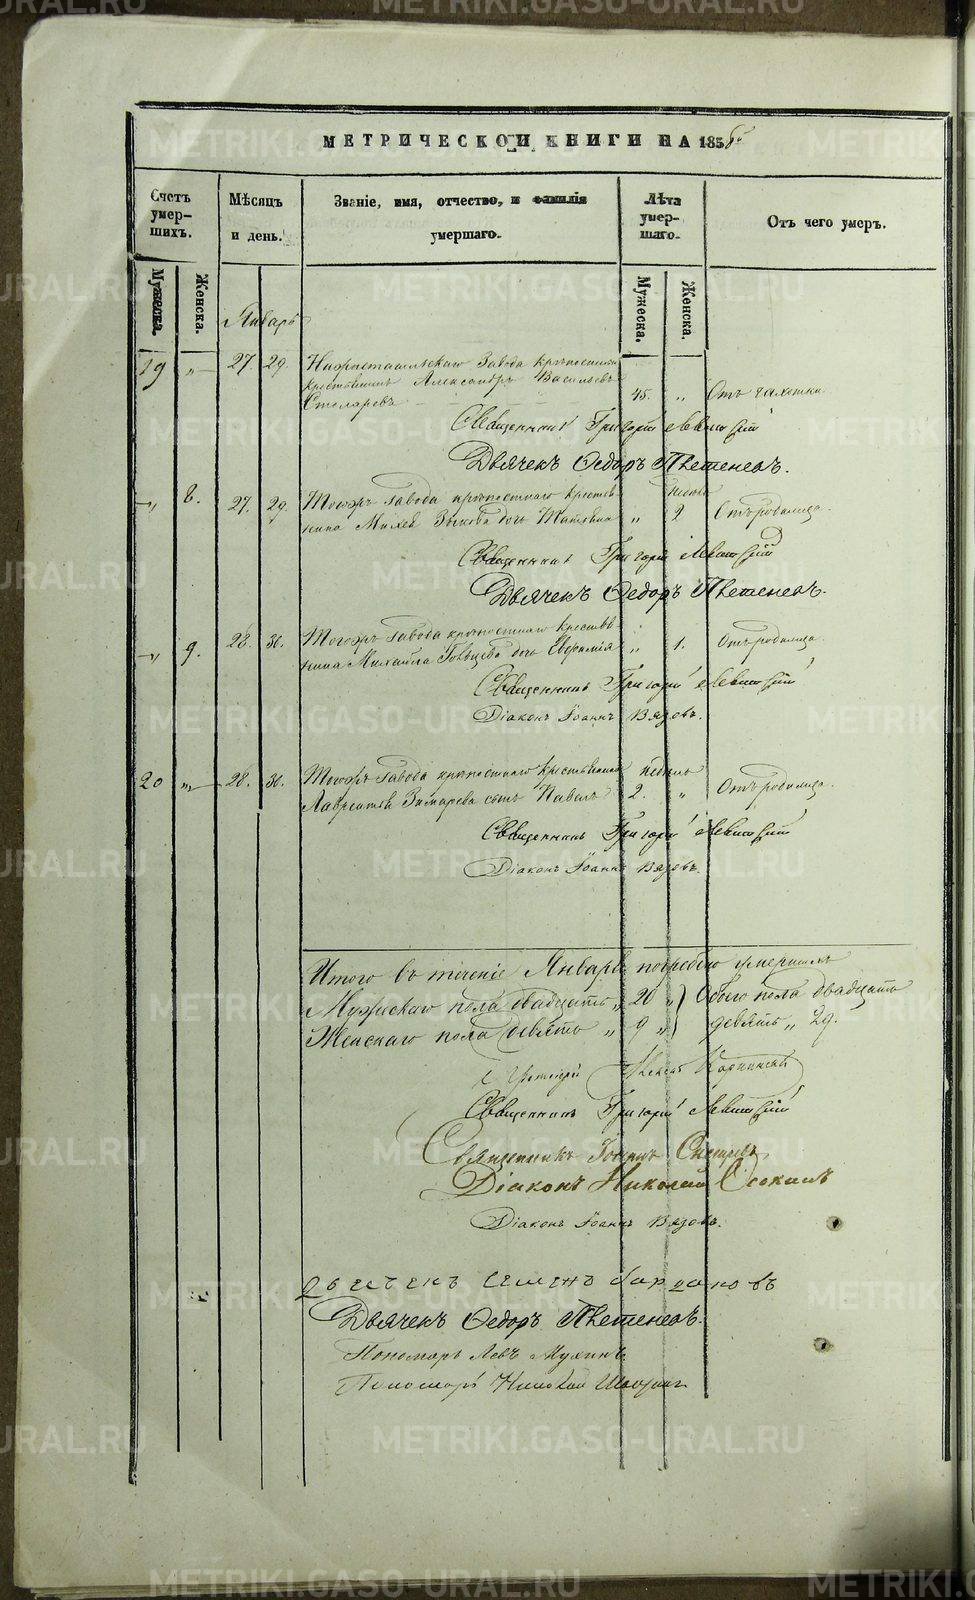 МЕТРИЧЕСКОЙ КНИГИ НА 1858
Счетъ умер-шихъ.
Мѣсяцъ и день.
Званіе, имя, отчество, и фамилія умершаго.
Лѣта умер-шаго.
Отъ чего умеръ.
Мужеска.
Женска.
Мужеска.
Женска.
Январь
19 „ 27. 29. Завода крѣпостный
крестьянинъ Александръ Васильевъ
Столяровъ 45. „ Отъ чахотки.
Священникъ Григорій Левитскій
Дьячекъ Ѳедоръ
„ 8. 27. 29. Тогожъ Завода крѣпостнаго крестья-
нина Зыкова дочь Татьяна „ 2 Отъ родимца.
Священникъ Григорій Левитскій
Дьячекъ Ѳедоръ
„ 9. 28. 30. Тогожъ Завода крѣпостнаго крестья-
нина Михайла дочь „ 1. Отъ родимца.
Священникъ Григорій Левитскій
Діаконъ Іоаннъ Вязовъ.
20 „ 28. 30. Тогожъ Завода крѣпостнаго крестьянина недѣль
Лаврентія сынъ Павелъ 2. „ Отъ родимца.
Священникъ Григорій Левитскій
Діаконъ Іоаннъ Вязовъ.
Итого въ теченіе Января погребено умершихъ
Мужскаго пола двадцать „ 20 „ Обоего пола двадцать
Женскаго пола девять „ 9 „ девять „ 29.
Священникъ Григорій Левитскій
Священникъ Іоаннъ
Діаконъ Николай Осокинъ
Діаконъ Іоаннъ Вязовъ.
Семенъ
Дьячекъ Ѳедоръ
Пономарь Левъ Мухинъ
Пономарь Николай
METRIKI.GASO-URAL.RU